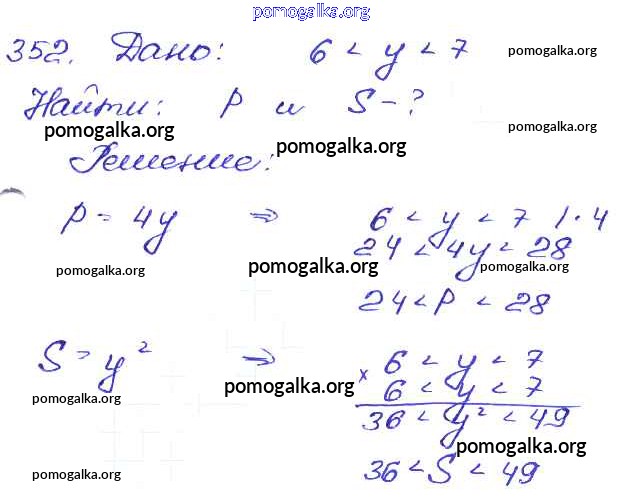 pomogalka.org
352. Дано: 6 < y < 7 pomogalka.org
Найти: P и S - ? pomogalka.org
pomogalka.org pomogalka.org
Решение:
P = 4y ⇒ 6 < y < 7 | · 4
24 < 4y < 28
pomogalka.org pomogalka.org pomogalka.org
24 < P < 28
S = y² ⇒ × 6 < y < 7
pomogalka.org pomogalka.org 6 < y < 7
36 < y² < 49
pomogalka.org
pomogalka.org 36 < S < 49